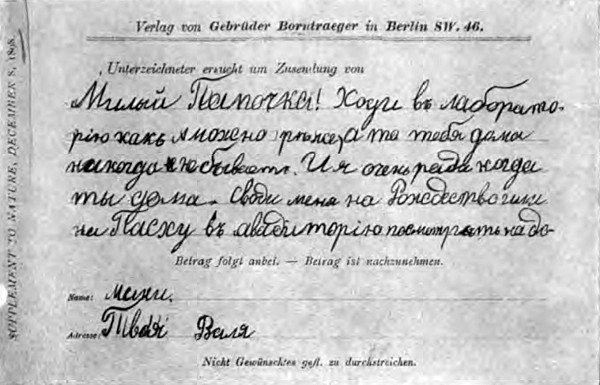 Verlag von Gebrüder Borntraeger in Berlin SW. 46.
Unterzeichneter ersucht um Zusendung von
Милый Папочка! Ходи въ лаборато-
рію какъ можно рѣже, а то тебя дома
никогда не бываетъ. И я очень рада когда
ты дома. Своди меня на Рождество или
на Пасху въ авадиторію посмотрѣть на до-
Betrag folgt anbei. — Betrag ist nachzunehmen.
Name: махи.
Adresse: Твоя Валя
Nicht Gewünschtes gefl. zu durchstreichen.
SUPPLEMENT TO NATURE, DECEMBER 8, 1898.